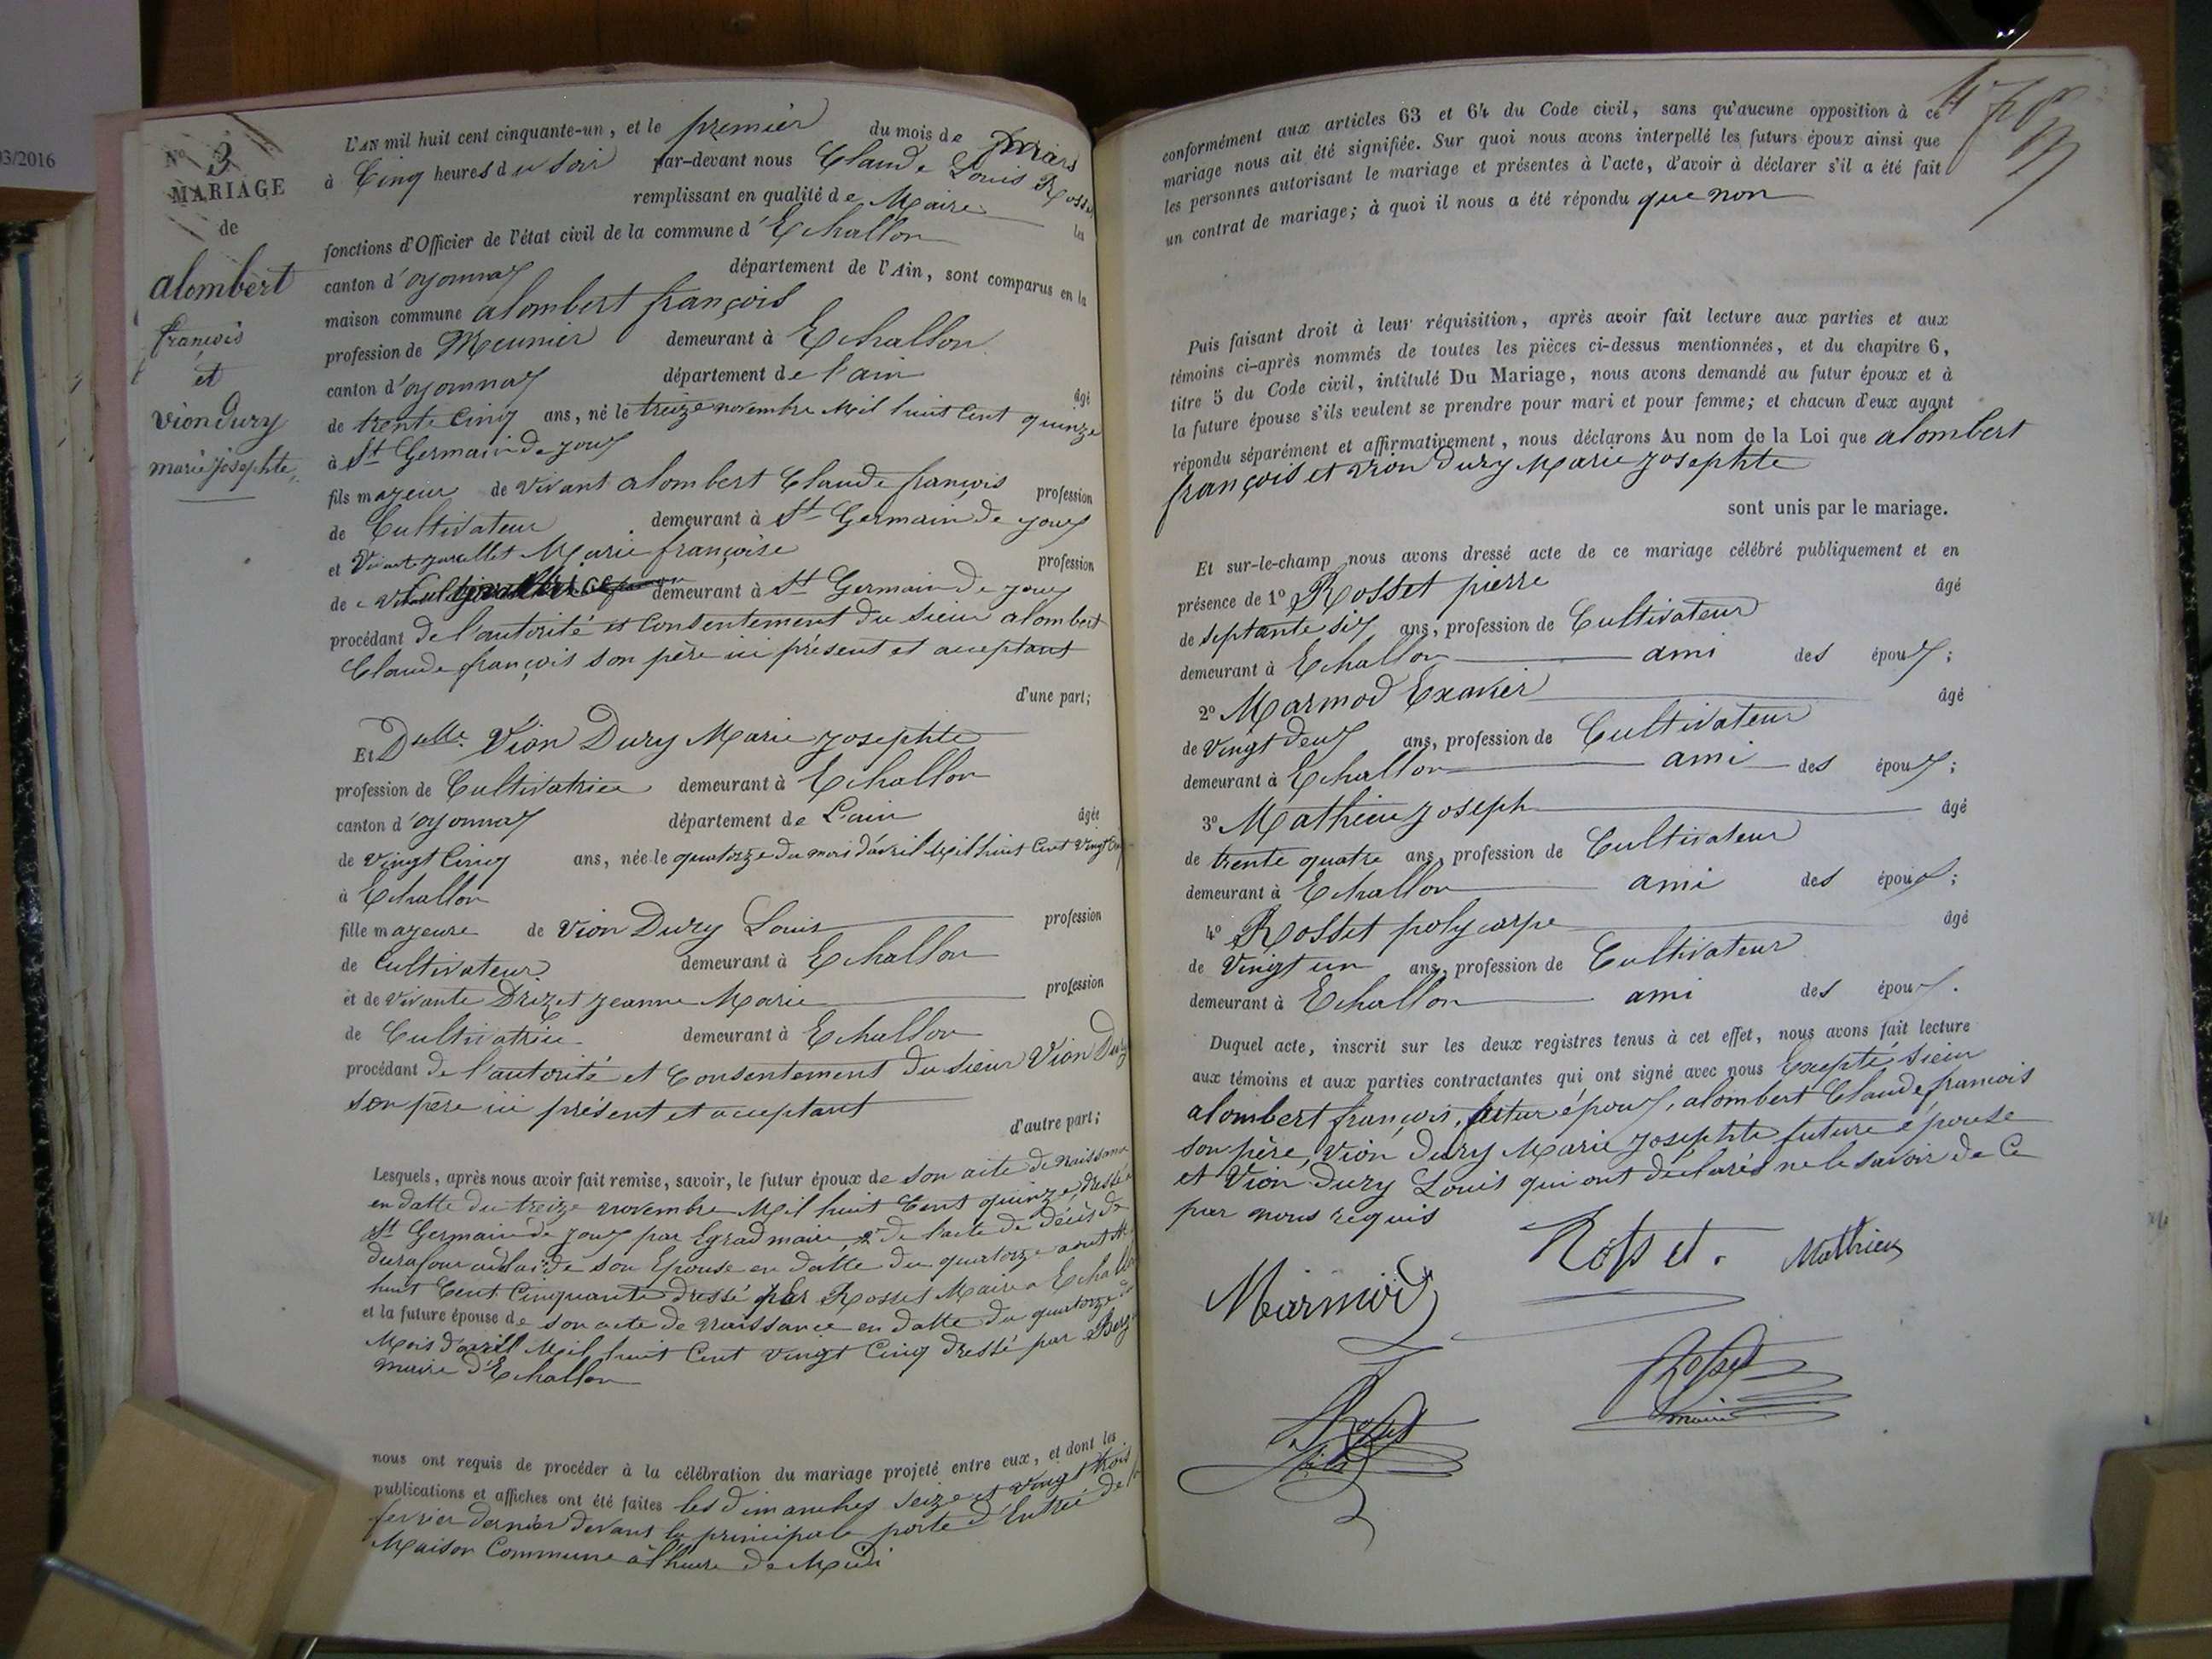 03/2016
N° 3
MARIAGE
de
alombert
françois
et
vion dury
marie josephte
L'AN mil huit cent cinquante-un, et le premier du mois de mars
à Cinq heures du soir par-devant nous Claude Louis Rosset
remplissant en qualité de Maire les
fonctions d'Officier de l'état civil de la commune d'Echallon
canton d'oyonnax département de l'Ain, sont comparus en la
maison commune alombert françois
profession de Meunier demeurant à Echallon
canton d'oyonnax département de l'ain âgé
de trente Cinq ans, né le treize novembre Mil huit Cent quinze
à St Germain de joux
fils majeur de vivant alombert Claude françois profession
de Cultivateur demeurant à St Germain de joux
et Vivante Marie françoise profession
de demeurant à St Germain de joux
procédant de l'autorité et Consentement du sieur alombert
Claude françois son père ici présent et acceptant
d'une part;
Et Delle Vion Dury Marie josephte
profession de Cultivatrice demeurant à Echallon
canton d'oyonnax département de L'ain âgée
de vingt Cinq ans, née le quatorze du mois d'avril Mil huit Cent vingt Cinq
à Echallon
fille majeure de Vion Dury Louis profession
de Cultivateur demeurant à Echallon
et de vivante Drizet jeanne Marie profession
de Cultivatrice demeurant à Echallon
procédant de l'autorité et Consentement du sieur Vion Dury
son père ici présent et acceptant
d'autre part;
Lesquels, après nous avoir fait remise, savoir, le futur époux de son acte de naissance
en datte du treize novembre Mil huit Cent quinze dressé
St Germain de joux par Egraz maire, et de l'acte de décès de
son Epouse en datte du quatorze aout
huit Cent Cinquante dressé par Rosset Maire a Echallon
et la future épouse de son acte de naissance en datte du quatorze du
Mois d'avril Mil huit Cent vingt Cinq dressé par
maire d'Echallon
nous ont requis de procéder à la célébration du mariage projeté entre eux, et dont les
publications et affiches ont été faites les dimanches seize et vingt trois
fevrier dernier devant la principale porte d'Entrée de la
Maison Commune à l'heure de Midi
conformément aux articles 63 et 64 du Code civil, sans qu'aucune opposition à ce
mariage nous ait été signifiée. Sur quoi nous avons interpellé les futurs époux ainsi que
les personnes autorisant le mariage et présentes à l'acte, d'avoir à déclarer s'il a été fait
un contrat de mariage; à quoi il nous a été répondu que non
Puis faisant droit à leur réquisition, après avoir fait lecture aux parties et aux
témoins ci-après nommés de toutes les pièces ci-dessus mentionnées, et du chapitre 6,
titre 5 du Code civil, intitulé Du Mariage, nous avons demandé au futur époux et à
la future épouse s'ils veulent se prendre pour mari et pour femme; et chacun d'eux ayant
répondu séparément et affirmativement, nous déclarons Au nom de la Loi que alombert
françois et vion Dury Marie josephte
sont unis par le mariage.
Et sur-le-champ nous avons dressé acte de ce mariage célébré publiquement et en
présence de 1° Rosset pierre âgé
de septante six ans, profession de Cultivateur
demeurant à Echallon ami des époux;
2° Marmod Exavier âgé
de vingt deux ans, profession de Cultivateur
demeurant à Echallon ami des époux;
3° Mathieu joseph âgé
de trente quatre ans, profession de Cultivateur
demeurant à Echallon ami des époux;
4° Rosset polycarpe âgé
de vingt un ans, profession de Cultivateur
demeurant à Echallon ami des époux.
Duquel acte, inscrit sur les deux registres tenus à cet effet, nous avons fait lecture
aux témoins et aux parties contractantes qui ont signé avec nous Excepté sieur
alombert françois, futur époux, alombert Claude francois
son père, Vion Dury Marie josephte future épouse
et Vion Dury Louis qui ont déclarés ne le savoir de Ce
par nous requis
Rosset. Mathieu
Marmod
Rosset
maire
Rosset